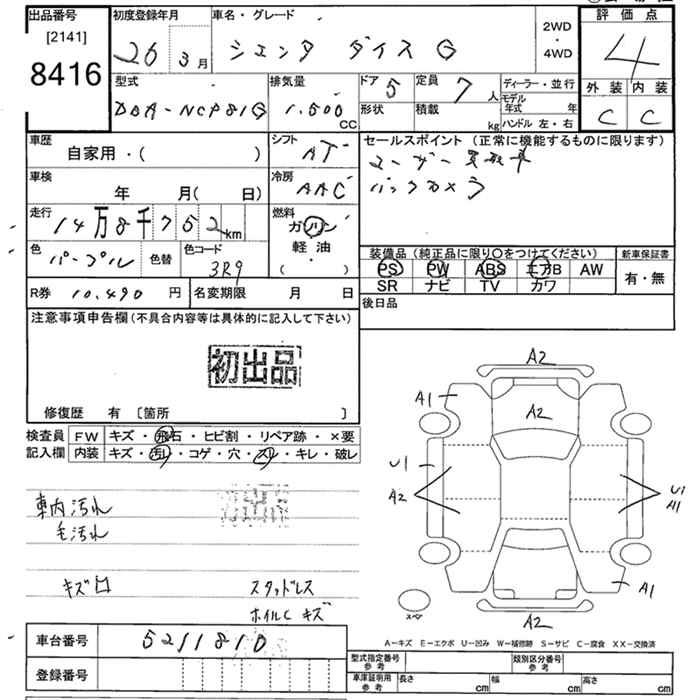 出品番号
[2141]
8416
初度登録年月
26 3月
車名・グレード
シエンタ ダイス G
2WD
・
4WD
評価点
4
外装 内装
C C
型式
DBA-NCP81G
排気量
1.500
CC
ドア 5
形状
定員 7 人
積載 kg
ディーラー・並行
モデル年式 年
ハンドル 左・右
車歴
自家用・( )
シフト
AT
車検
年 月( 日)
冷房
AAC
走行
14万8千752km
燃料
ガソリン
軽油・
( )
色
パープル
色替
色コード
3R9
R券 10.490 円
名変期限 月 日
セールスポイント (正常に機能するものに限ります)
ユーザー買取車
バックカメラ
装備品 (純正品に限り〇をつけてください)
PS PW ABS エアB AW
SR ナビ TV カワ
新車保証書
有・無
後日品
注意事項申告欄(不具合内容等は具体的に記入して下さい)
初出品
修復歴 有 〔箇所 〕
検査員
記入欄
FW キズ・飛石・ヒビ割・リペア跡・×要
内装 キズ・汚れ・コゲ・穴・スレ・キレ・破レ
車内汚れ
毛汚れ
キズ
スタッドレス
ホイルC キズ
A2
A1
A2
U1
A2
U1
A1
A1
A2
スペア
A-キズ E-エクボ U-凹み W-補修跡 S-サビ C-腐食 XX-交換済
車台番号 5211810
登録番号
型式指定番号
参考
類別区分番号
参考
車庫証明用
参考
長さ cm 幅 cm 高さ cm